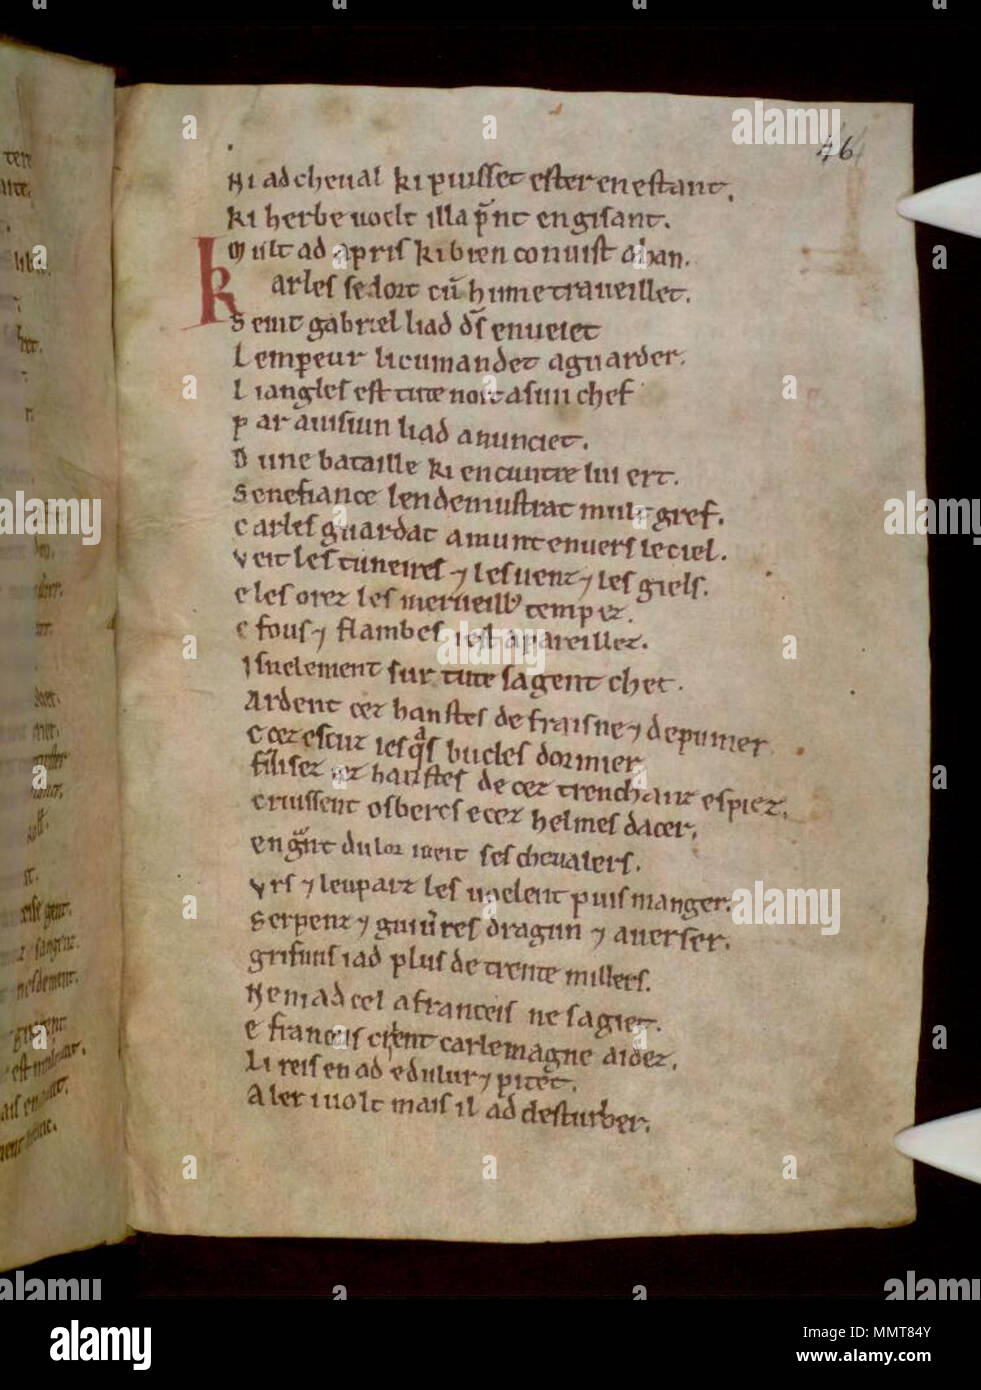 46
N i ad cheual ki puisset ester en estant.
ki herbe uoelt il la p̃nt en gisant.
M ult ad apris ki bien conuist ahan.
K arles se dort cũ hume traueillet.
S eint gabriel li ad d̃s enueiet
L emꝑeur li cumandet a guarder.
L i angles est tute noit a sun chef
P ar auisiun li ad anunciet.
D une bataille ki encuntre lui ert.
S enefiance len demustrat mult gref.
C arles guardat amunt enuers le ciel.
V eit les tuneires ⁊ les uenz ⁊ les giels.
E les orez les merueillꝰ tempez.
E fous ⁊ flambes i est apareillez.
I snelement sur tute sa gent chet.
A rdent cez hanstes de fraisne ⁊ de pumer
E cez escuz iesqᵃs bucles dor mier
fruisez cez hanstes de cez trenchanz espiez.
C ruissent osbercs e cez helmes dacer.
en gᵃnt dulor i ueit ses cheualers.
V rs ⁊ leuparz les uoelent puis manger.
S erpenz ⁊ guiures dragun ⁊ auerser.
grifuns i ad plus de trente millers.
N en i ad cel a franceis ne sagiet.
E franceis crient carlemagne aidez.
L i reis en ad e dulur ⁊ pitet.
A ler i uolt mais il ad desturber.
alamy
Image ID: MMT84Y
www.alamy.com